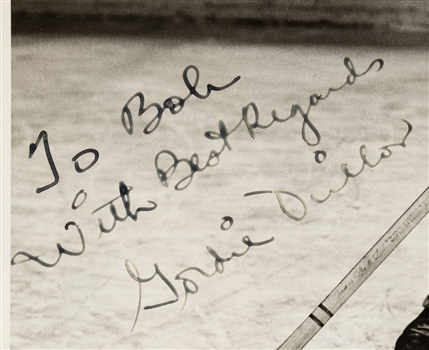 To Bob
With Best Regards
Gordie Dillon